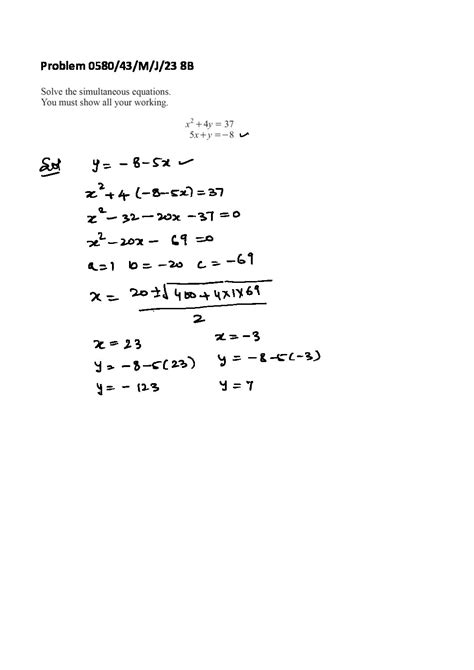 Problem 0580/43/M/J/23 8B
Solve the simultaneous equations.
You must show all your working.
x² + 4y = 37
5x + y = −8 ✓
Sol y = −8−5x ✓
x² + 4 (−8−5x) = 37
x² − 32 − 20x − 37 = 0
x² − 20x − 69 = 0
a = 1 b = −20 c = −69
x = 20 ± √400 + 4×1×69
2
x = 23 x = −3
y = −8−5(23) y = −8−5(−3)
y = − 123 y = 7